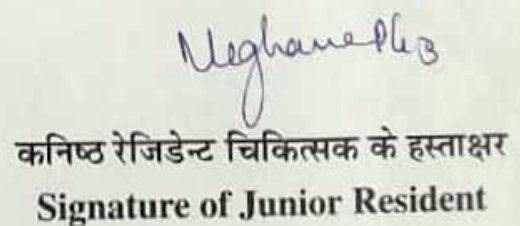 Meghana PG3
कनिष्ठ रेजिडेन्ट चिकित्सक के हस्ताक्षर
Signature of Junior Resident